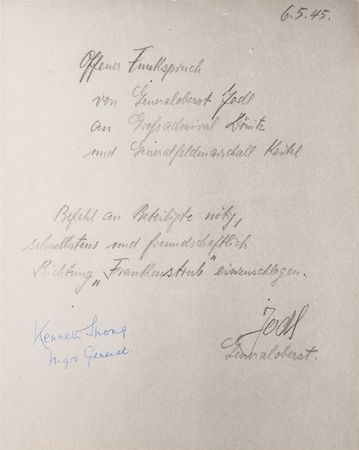 6.5.45.
Offener Funkspruch
von Generaloberst Jodl
an Großadmiral Dönitz
und Generalfeldmarschall Keitel
Befehl an Beteiligte nötig,
schnellstens und freundschaftlich
Richtung „Frankenstrub" einzuschlagen.
Jodl
Generaloberst.
Kenneth Strong.
Major General